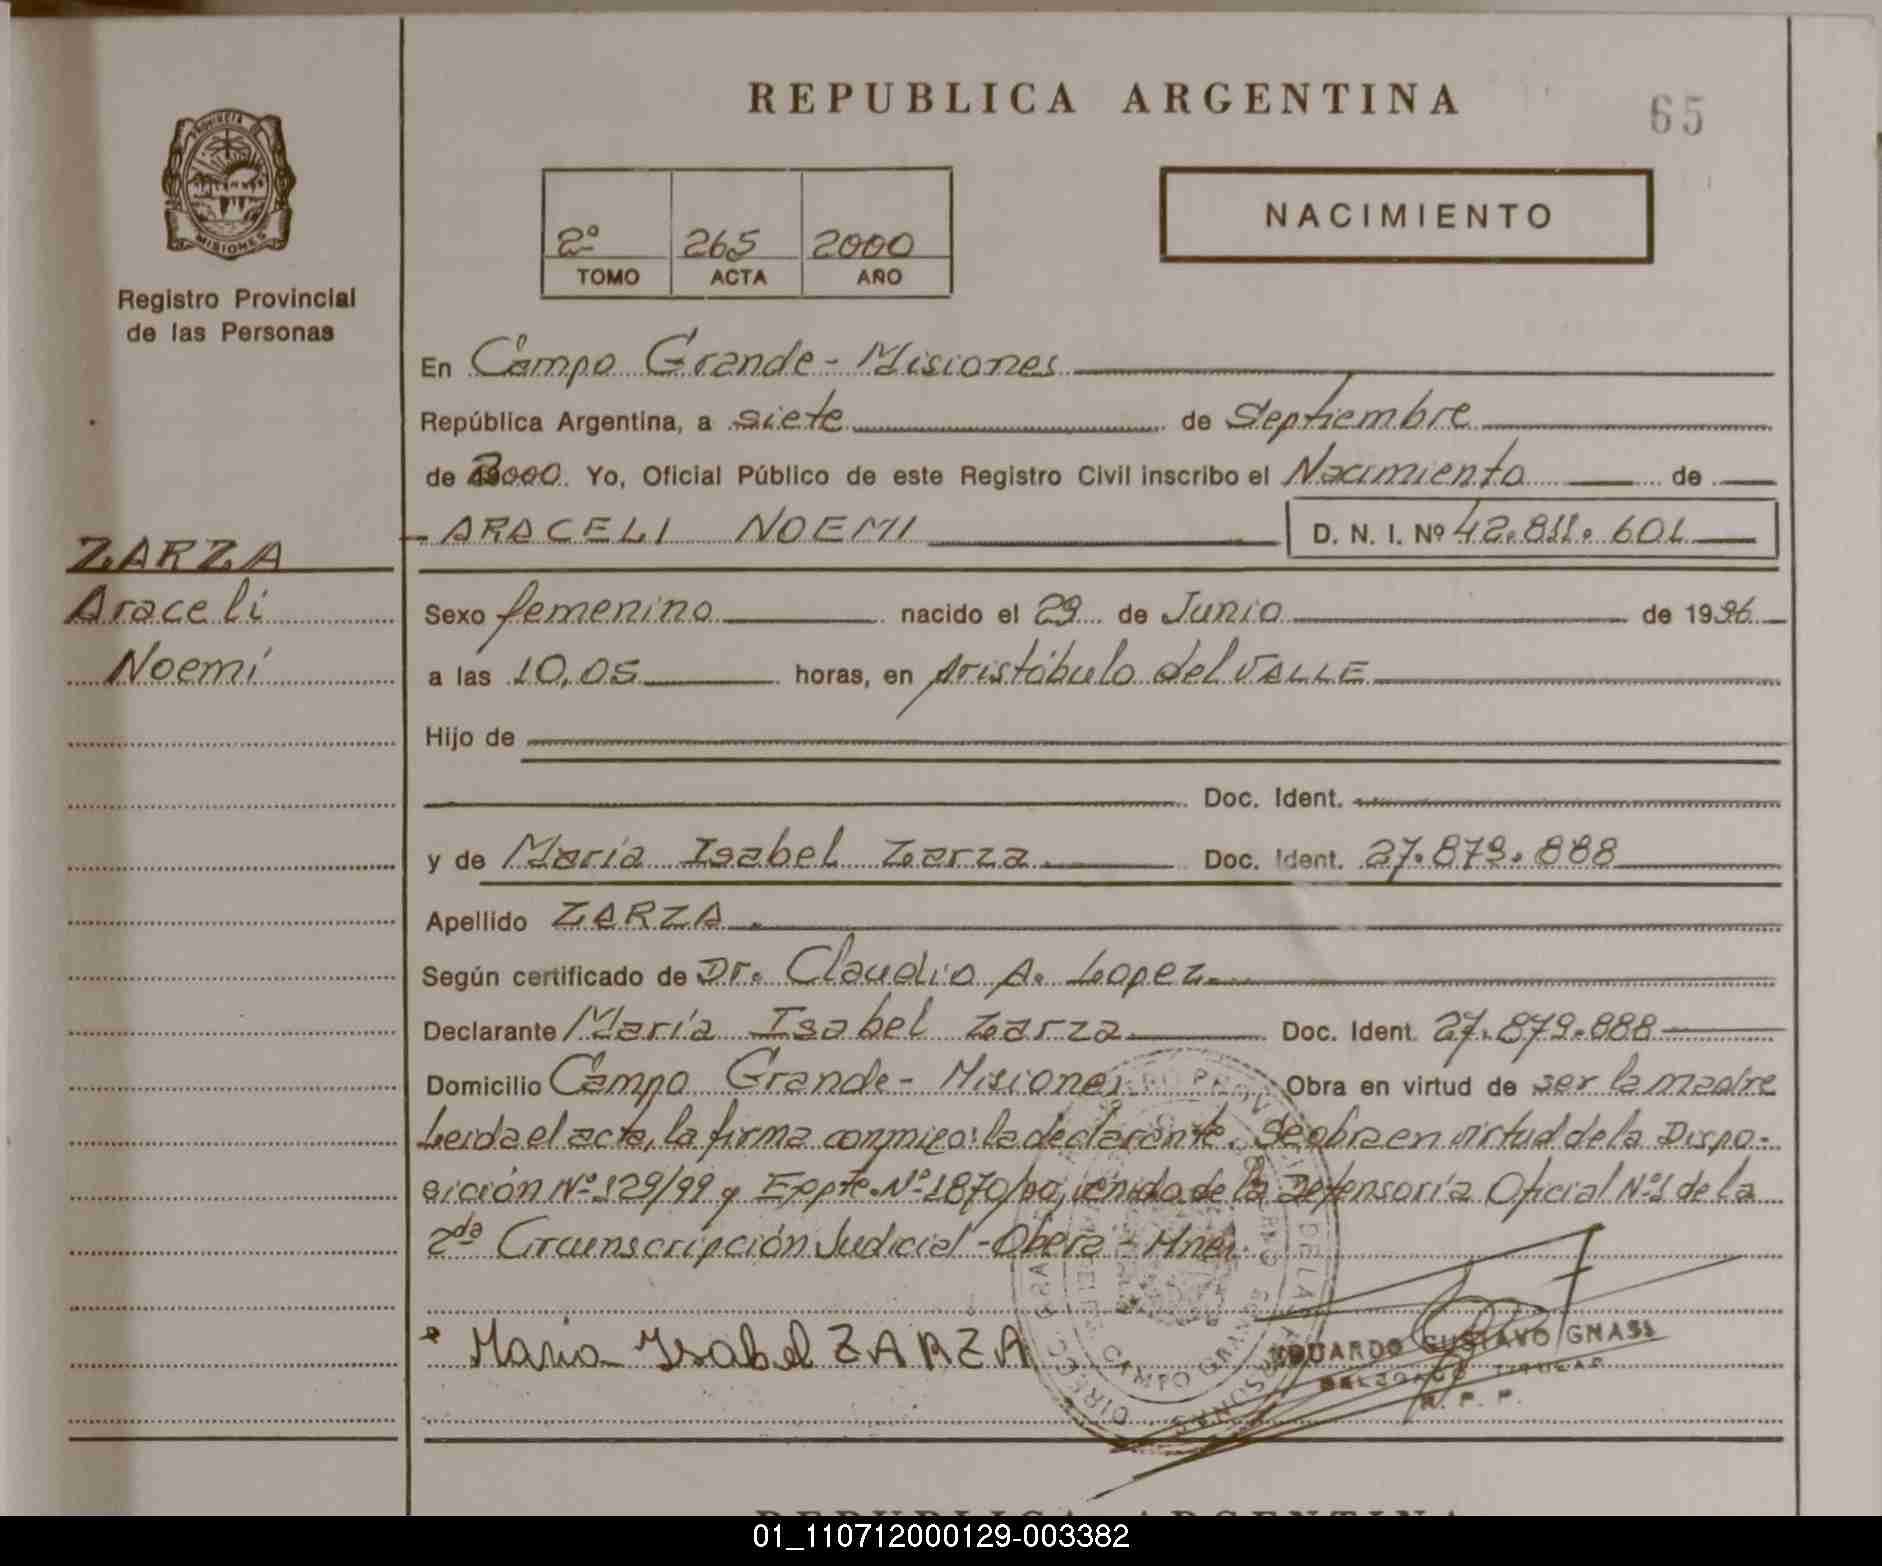 REPUBLICA ARGENTINA
65
PROVINCIA DE
MISIONES
Registro Provincial
de las Personas
2º 265 2000
TOMO ACTA AÑO
NACIMIENTO
En Campo Grande - Misiones
República Argentina, a siete de Septiembre
de 2000. Yo, Oficial Público de este Registro Civil inscribo el Nacimiento de
ARACELI NOEMI D. N. I. Nº 42.811.601
ZARZA
Araceli
Noemí
Sexo femenino nacido el 29 de Junio de 1996
a las 10,05 horas, en Aristóbulo del VALLE
Hijo de
Doc. Ident.
y de María Isabel Zarza Doc. Ident. 27.879.888
Apellido ZARZA
Según certificado de Dr. Claudio A. Lopez
Declarante María Isabel Zarza Doc. Ident. 27.879.888
Domicilio Campo Grande - Misiones Obra en virtud de ser la madre
Leida el acta, la firma conmigo: la declarante. Se obra en virtud de la Dispo-
sición Nº 129/99 y Expte. Nº 1870/00, venido de la Defensoría Oficial Nº 1 de la
2da Circunscripción Judicial - Obera - Mnes.
Maria Isabel ZARZA
EDUARDO GUSTAVO GNASS
DELEGADO TITULAR
R. P. P.
CAMPO GRANDE
REPUBLICA ARGENTINA
01_110712000129-003382